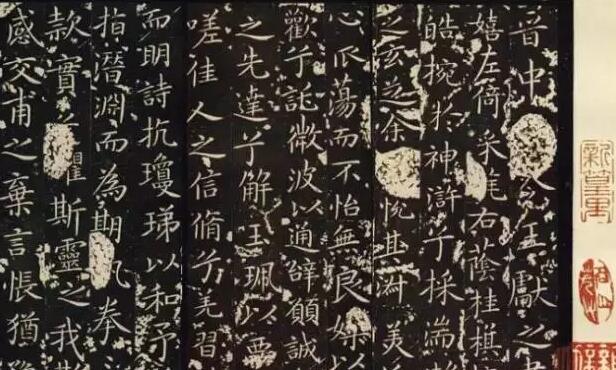 晉中王獻之
嬉左倚采旄右蔭桂旗
皓捥於神滸兮採湍
之玄芝余悅其淑美
心振蕩而不怡無良媒以
歡兮託微波以通辭願誠
之先達兮解玉珮以要
嗟佳人之信脩兮羌習
而明詩抗瓊珶以和予
指潛淵而為期拳
款實兮懼斯靈之我
感交甫之棄言悵猶